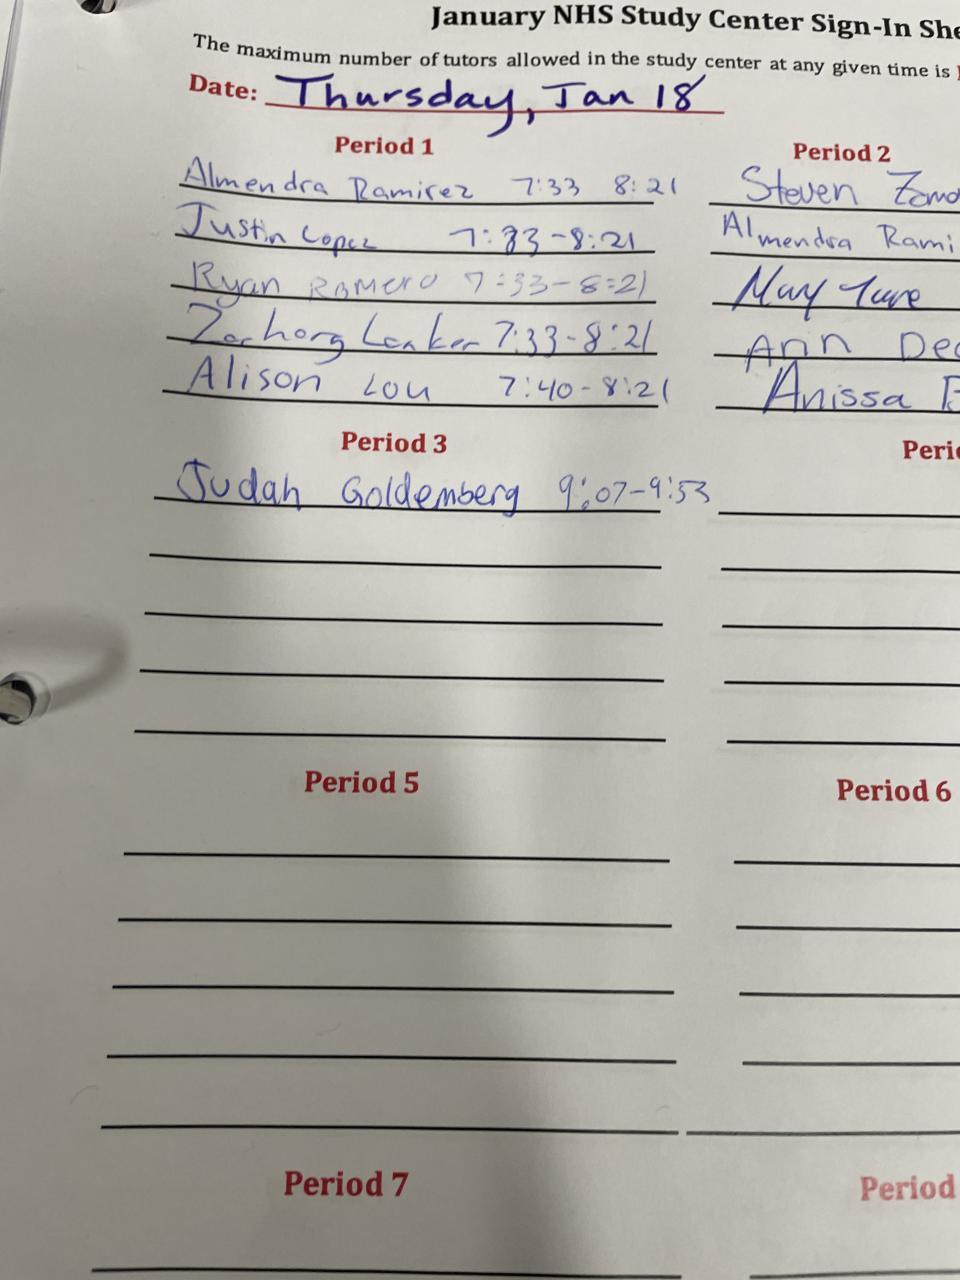 January NHS Study Center Sign-In She
The maximum number of tutors allowed in the study center at any given time is
Date: Thursday, Jan 18
Period 1
Almendra Ramirez 7:33 8:21
Justin Lopez 7:33-8:21
Ryan Romero 7:33-8:21
7:33-8:21
Alison Lou 7:40-8:21
Period 2
Steven
Almendra Rami
Anissa
Period 3
Judah Goldemberg 9:07-9:53
Perio
Period 5
Period 6
Period 7
Period